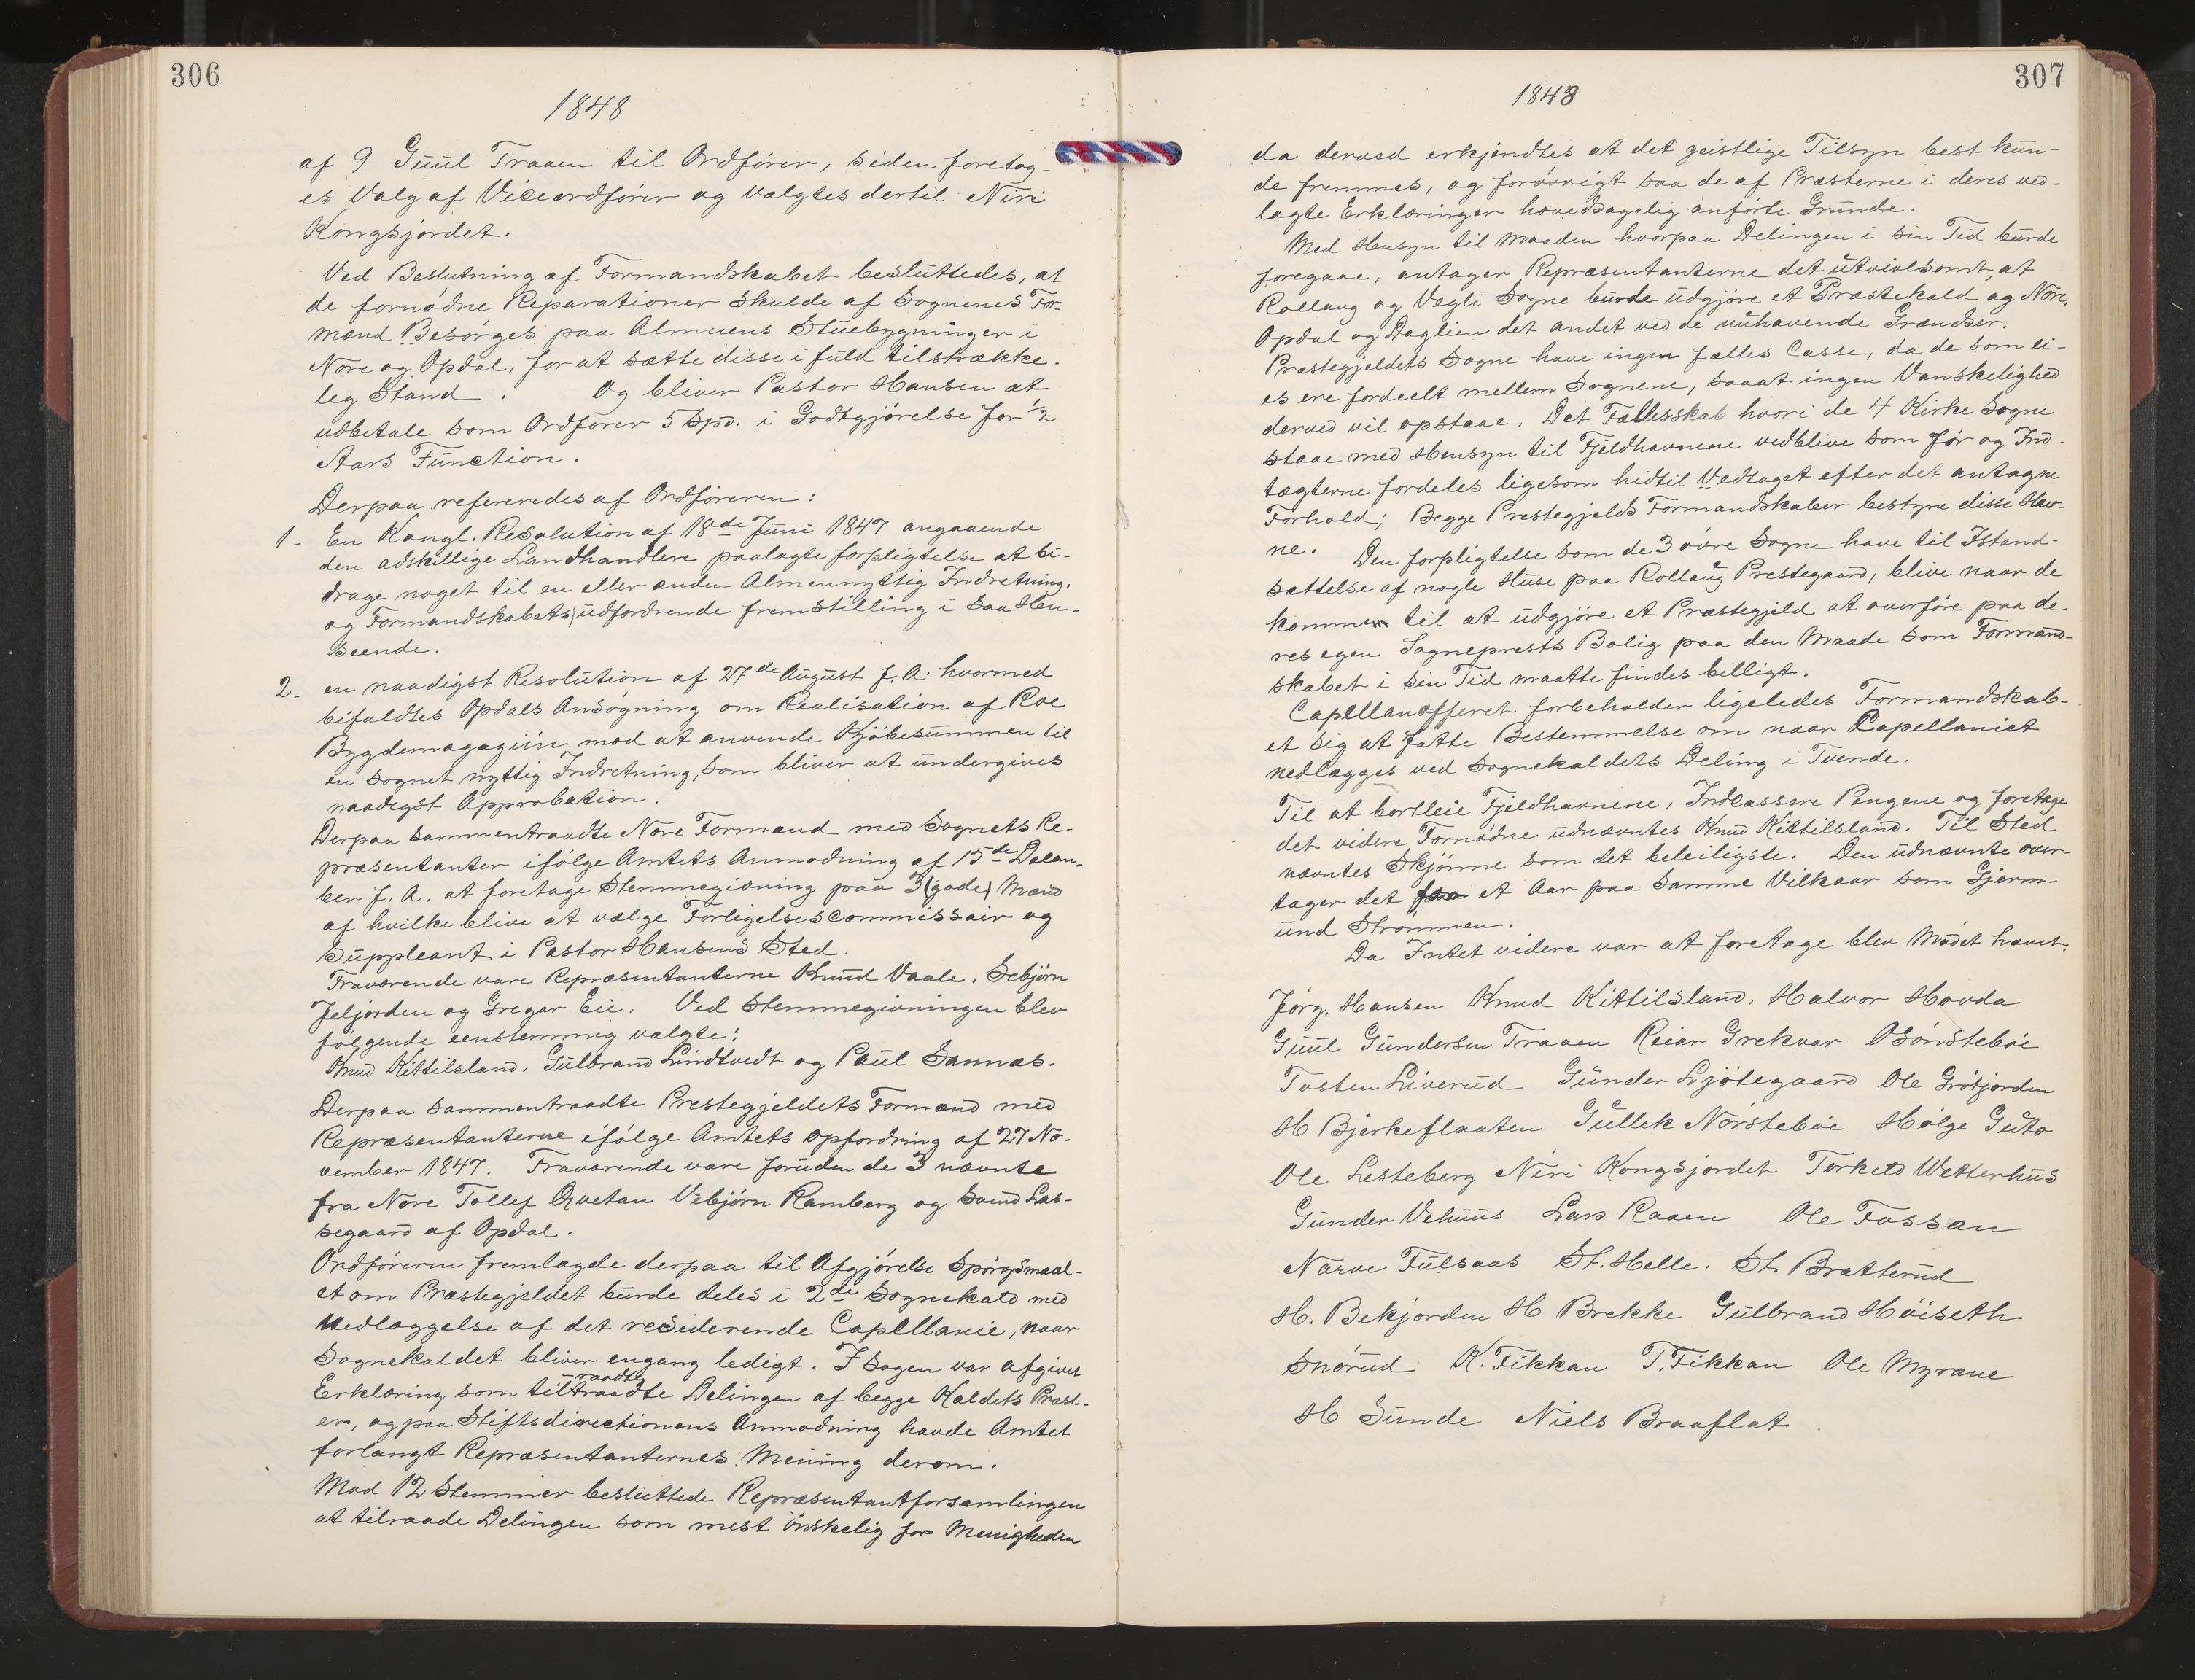 306
1848
af 9 Guul Traaen til Ordfører, siden foretog-
es Valg af Viceordfører og valgtes dertil Niri
Kongsjordet.
Ved Beslutning af Formandskabet besluttedes, at
de fornødne Reparationer skulde af Sognenes For-
mænd Besørges paa Almuens Stuebygninger i
Nore og Opdal, for at sætte disse i fuld tilstrække-
leg Stand. Og bliver Pastor Hansen at
udbetale som Ordfører 5 Spd. i Godtgjørelse for 1/2
Aars Function.
Derpaa refereredes af Ordføreren:
1- En Kongl. Resolution af 18de Juni 1847 angaaende
den adskillige Landhandlere paalagte forpligtelse at bi-
drage noget til en eller anden Almennyttig Indretning,
og Formandskabets udfordrende fremstilling i saa Hen-
seende.
2- en naadigst Resolution af 27de August f. A. hvormed
bifaldtes Opdals Ansøgning om Realisation af Roe
Bygdemagaziin mod at anvende Kjöbesummen til
en Sognet nyttig Indretning, som bliver at undergives
naadigst Approbation.
Derpaa sammentraadte Nore Formænd med Sognets Re-
præsentanter ifølge Amtets Anmodning af 15de Decem-
ber f. A. at foretage Stemmegivning paa 3 (gode) Mænd
af hvilke blive at vælge Forligelsescommissair og
Suppleant i Pastor Hansens Sted.
Fraværende vare Repræsentanterne Knud Vaale, Sebjörn
Jeljorden og Gregar Eie. Ved Stemmegivningen blev
følgende eenstemmig valgte:
Knud Kittilsland, Gulbrand Lindtvedt og Paul Sannæs.
Derpaa sammentraadte Prestegjeldets Formænd med
Repræsentanterne ifølge Amtets Opfordring af 27 No-
vember 1847. Fraværende vare foruden de 3 nævnte
fra Nore Tollef Qvetan Vebjørn Ramberg og Svend Las-
segaard af Opdal.
Ordføreren fremlagde derpaa til Afgjørelse Spørgsmaal-
et om Præstegjeldet burde deles i 2de Sognekald med
Nedlæggelse af det residerende Capellanie, naar
Sognekaldet bliver engang ledigt. I Sagen var afgivet
raadte
Erklæring som tiltraadte Delingen af begge Kaldets Præst-
er, og paa Stiftsdirectionens Anmodning havde Amtet
forlangt Repræsentanternes Mening derom.
Mod 12 Stemmer besluttede Repræsentantforsamlingen
at tilraade Delingen som mest önskelig for Menigheden
307
1848
da derved erkjendtes at det geistlige Tilsyn best kun-
de fremmes, og forøvrigt saa de af Præsterne i deres ved-
lagte Erklæringer hovedsagelig anførte Grunde.
Med Hensyn til Maaden hvorpaa Delingen i sin Tid burde
foregaae, antager Repræsentanterne det utvivlsomt, at
Rollaug og Vægli Sogne burde udgjøre et Præstekald og Nore,
Opdal og Daglien det andet ved de nuhavende Grændser.
Præstegjeldets Sogne have ingen fælles Casse, da de som ei-
es ere fordeelt mellem Sognene, saaat ingen Vanskelighed
derved vil opstaae. Det Fællesskab hvori de 4 Kirke Sogne
staae med Hensyn til Fjeldhavnene vedblive som før og Ind-
tægterne fordeles ligesom hidtil Vedtaget efter det antagne
Forhold; Begge Prestegjelds Formandskaber bestyre disse Hav-
ne. Den forpligtelse som de 3 øvre Sogne have til Istand-
sættelse af nogle Huse paa Rollaug Prestegaard, blive naar de
kommer til at udgjøre et Præstegjeld at overføre paa de-
res egen Sogneprests Bolig paa den Maade som Formand-
skabet i sin Tid maatte findes billigt.
Capellanofferet forbeholder ligeledes Formandskab-
et sig at fatte Bestemmelse om naar Capellaniet
nedlægges ved Sognekaldets Deling i Tvende.
Til at bortleie Fjeldhavnene, Indcassere Pengene og foretage
det videre Fornødne udnævntes Knud Kittilsland. Til Sted
nævntes Skjönne som det beleiligste. Den udnævnte over-
tager det et Aar paa samme Vilkaar som Gjerm-
und Strømmen.
Da Intet videre var at foretage blev Mødet hævet.
Jörg. Hansen Knud Kittilsland. Halvor Hovda
Guul Gundersen Traaen Reiar Grekvar O Bönsteböe
Tosten Liverud Gunder Ljötegaard Ole Grötjorden
H Bjerkeflaaten Gullek Nörsteböe Hölge Guto
Ole Lesteberg Niri Kongsjordet Torkeld Wetterhus
Gunder Vehuus Lars Raaen Ole Fossan
Narve Fulsaas St. Helle. St. Bratterud
H. Bekjorden H Brekke Gulbrand Höiseth
Snörud K. Fikkan T. Fikkan Ole Myrane
H Sunde Niels Braaflat